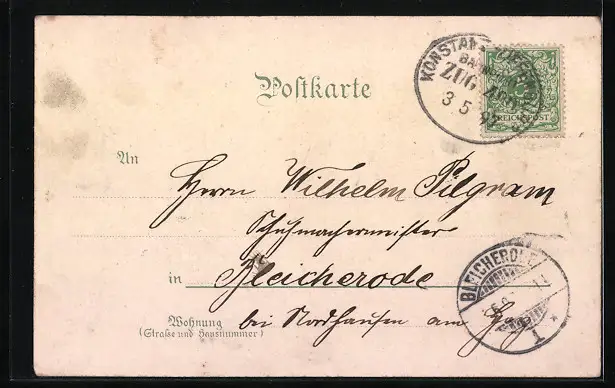 KONSTANZ
BAHNPOST
ZUG
3 5 97
REICHSPOST
Postkarte
An
Herrn Wilhelm Pilgram
Schuhmachermeister
in Bleicherode
BLEICHERODE
1
Wohnung
(Straße und Hausnummer)
bei Nordhausen am Hrz